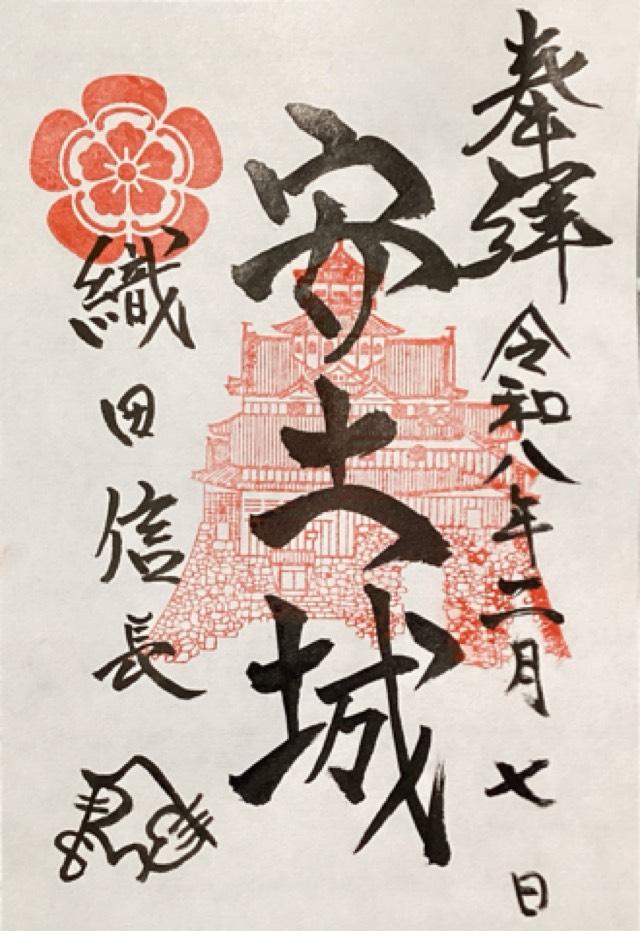 奉拝 令和八年二月七日
安土城
織田信長